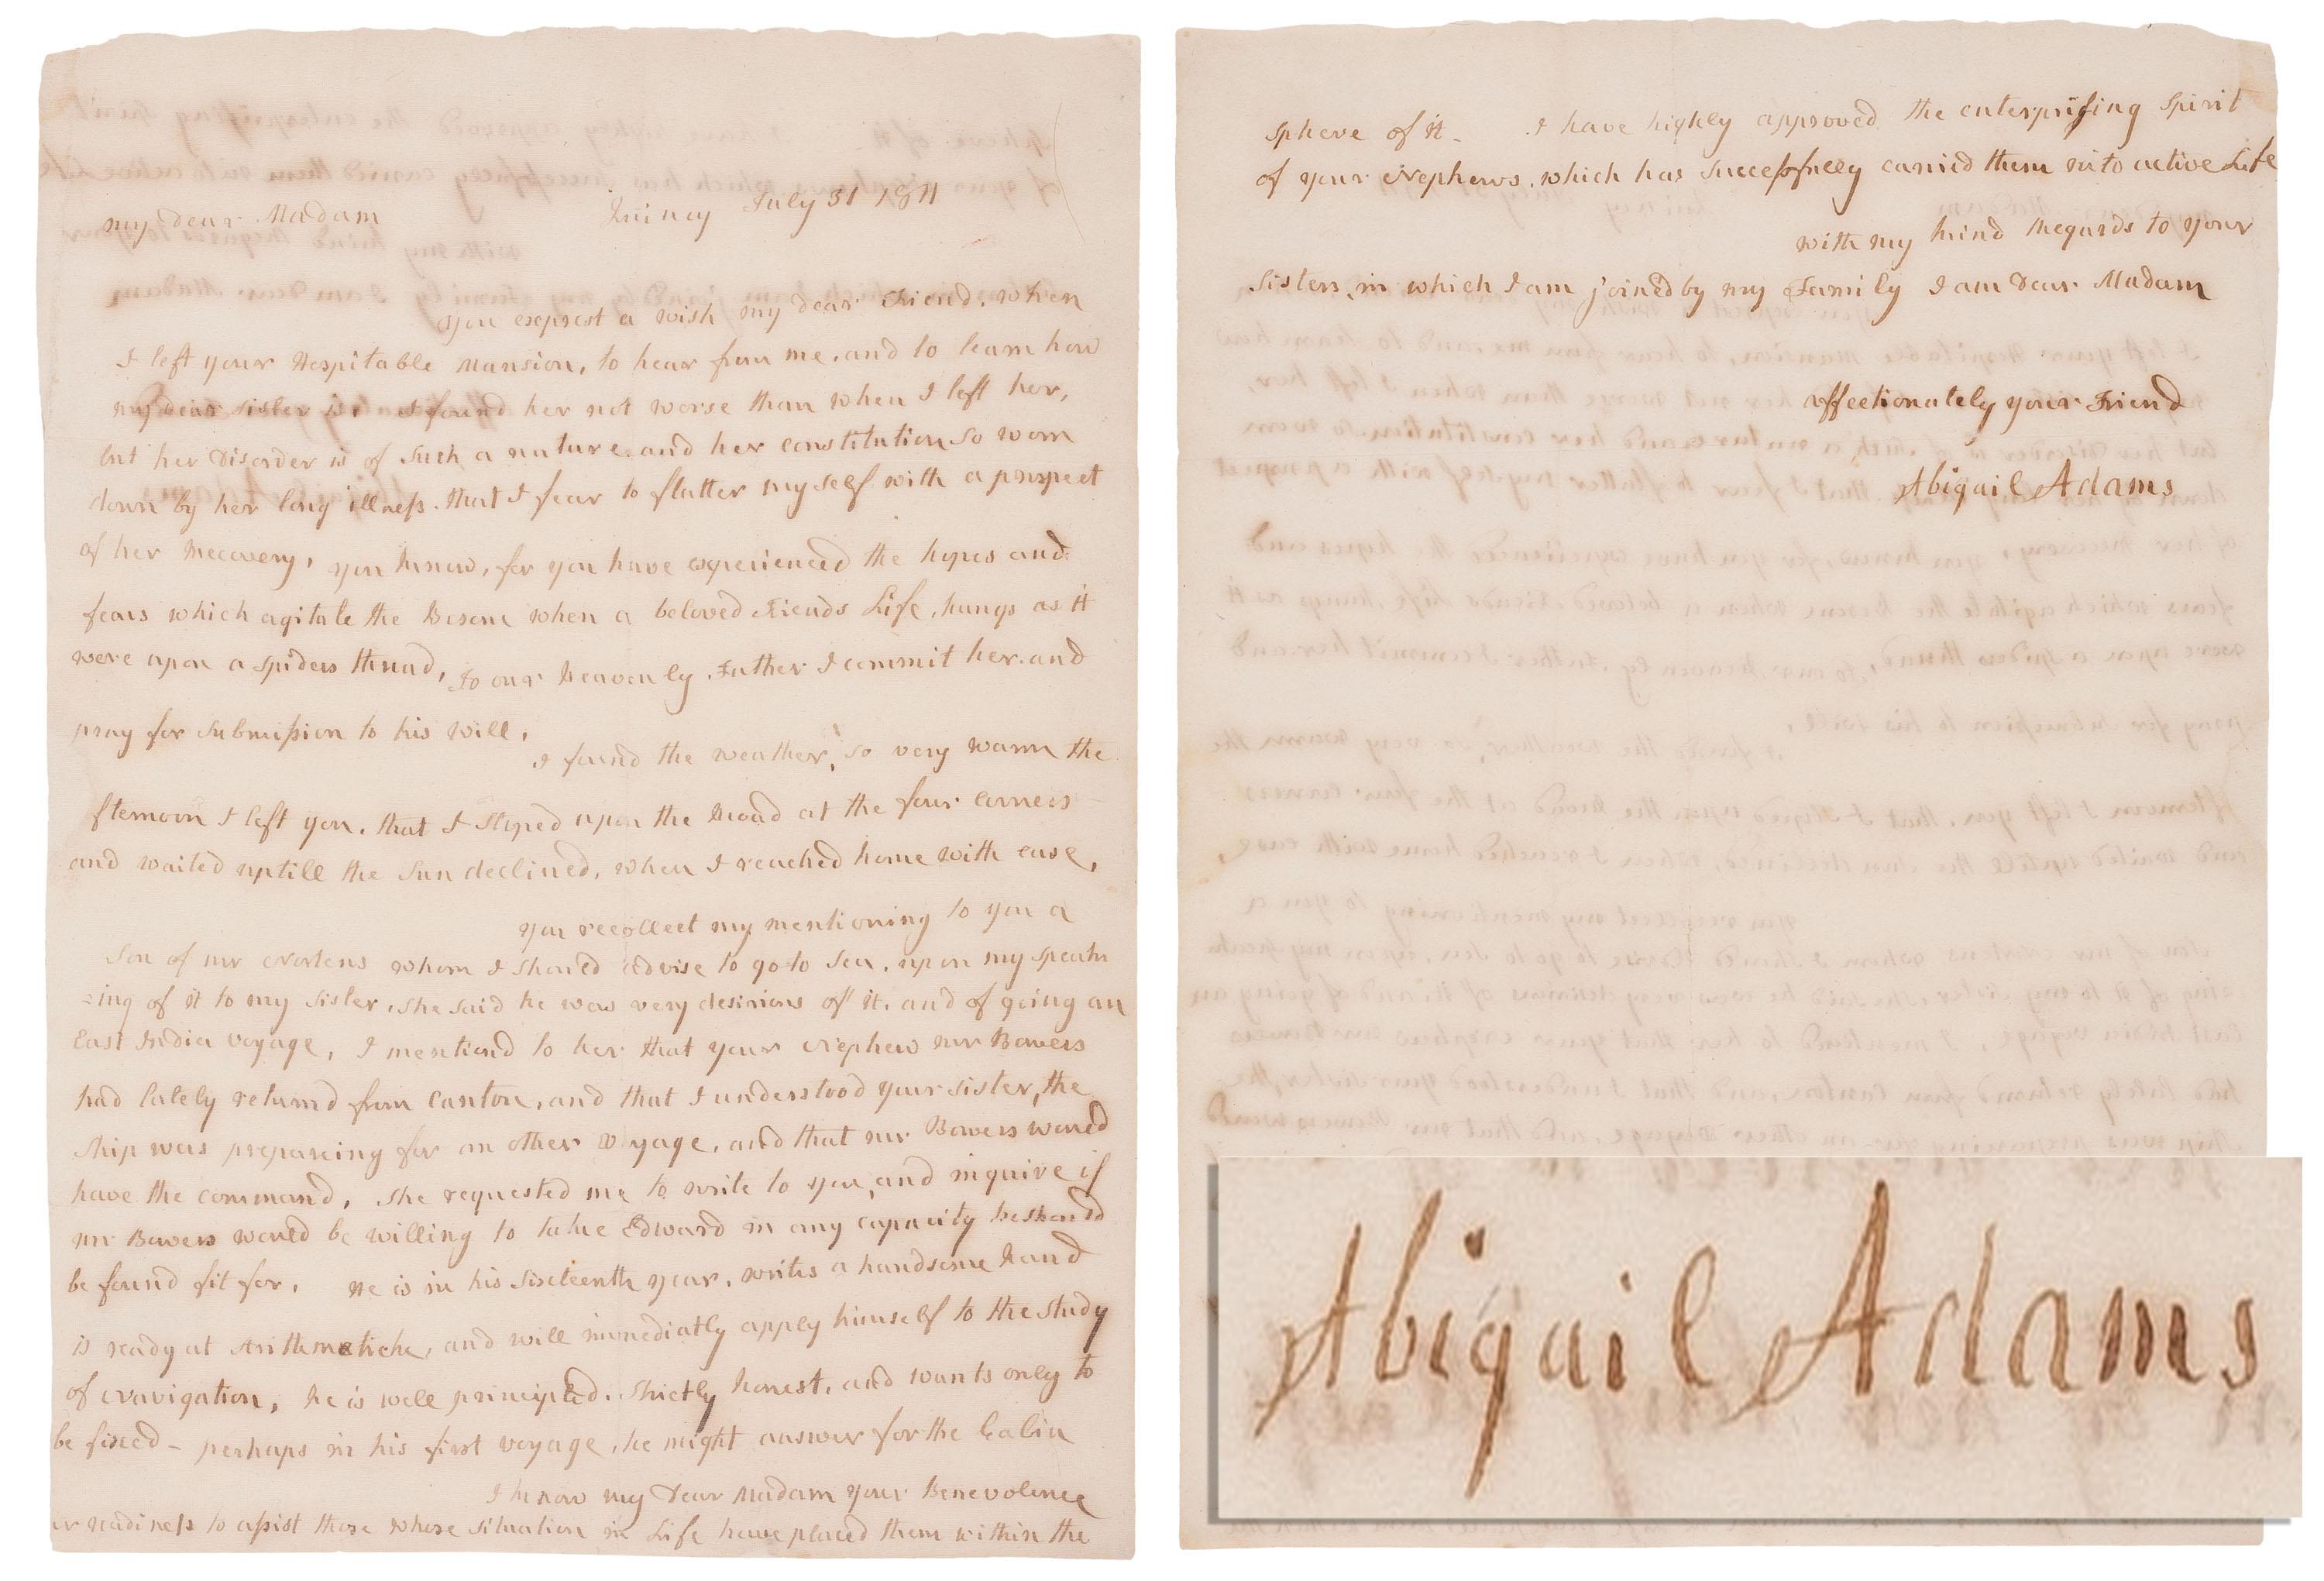 Quincy July 31 1811
my dear Madam
you exprest a wish my dear Friend, when
I left your Hospitable Mansion, to hear from me, and to learn how
my dear sister is. I found her not worse than when I left her,
but her disorder is of such a nature, and her constitution so worn
down by her long illness. that I fear to flatter myself with a prospect
of her recovery, you know, for you have experienced the hopes and
fears which agitate the Bosom when a beloved Friends Life, hangs as it
were upon a spiders thread, to our Heavenly Father I commit her and
pray for submission to his will,
I found the weather, so very warm the
fternoon I left you, that I stoped upon the Road at the four corners
and waited uptill the Sun declined, when I reached home with ease,
you recollect my mentioning to you a
son of mr Nortens whom I should advise to go to Sea, upon my speak
=ing of it to my sister, she said he was very desirious of it, and of going an
East India voyage, I mentiond to her that your Nephew mr Bowers
had lately returnd from Canton, and that I understood your sister, the
ship was prepareing for an other voyage, and that mr Bowers would
have the command, she requested me to write to you, and inquire if
mr Bowers would be willing to take Edward in any capacity he should
be found fit for, He is in his sixteenth year, writes a handsome hand
is ready at Arithmetick, and will immediatly apply himself to the study
of Navigation, he is well principled, strictly honest, and wants only to
be fixed - perhaps in his first voyage, he might answer for the Cabin
I know my Dear Madam your Benevolence
readiness to assist those whose situation in Life have placed them within the
sphere of it - I have highly approved the enterprising spirit
of your Nephews, which has successfully carried them into active Life
with my kind Regards to your
Sisters, in which I am joined by my Family I am Dear Madam
affectionately your Friend
Abigail Adams
Abigail Adams